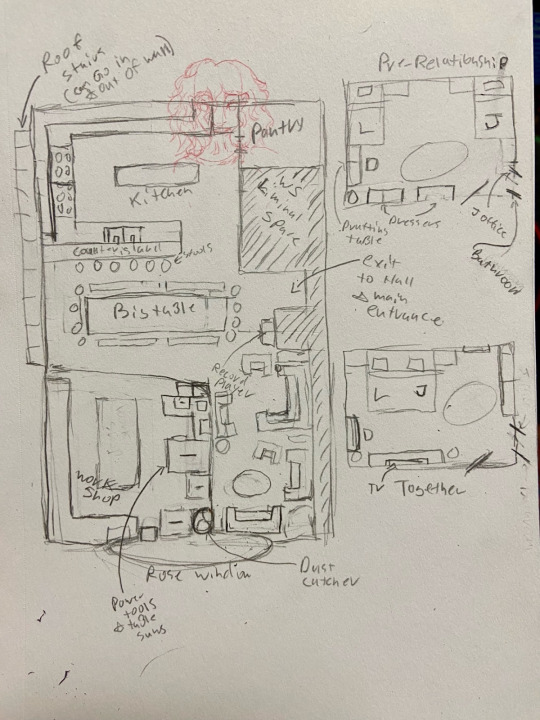 Roof
stairs
(can go in
& out of wall)
Pre-Relationship
Pantry
L
J
Kitchen
liminal
space
Drafting
table
Dressers
Bathroom
Counter island
Big table
exit
to Hall
& main
entrance
Record
Player
L
J
work
shop
TV
Together
Rose window
Dust
catcher
Power
tools
& table
saws